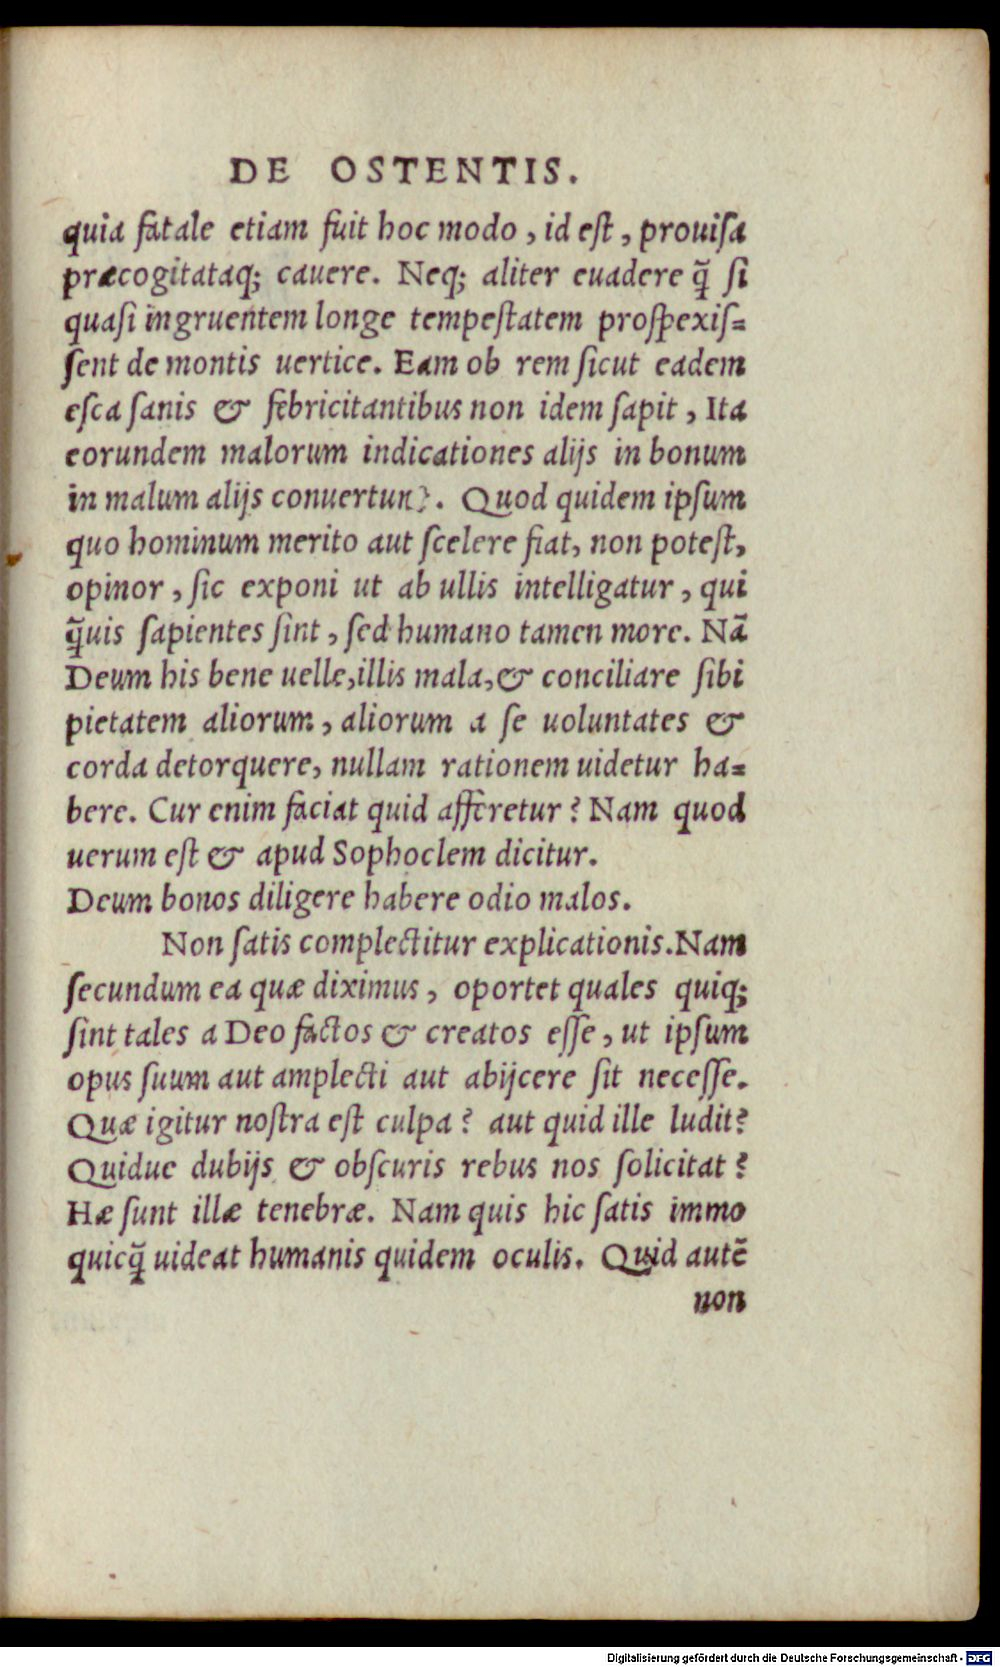 DE OSTENTIS.
quia fatale etiam fuit hoc modo, id eſt, prouiſa
præcogitataq; cauere. Neq; aliter euadere q̃ ſi
quaſi ingruentem longe tempeſtatem proſpexiſ=
ſent de montis uertice. Eam ob rem ſicut eadem
eſca ſanis & febricitantibus non idem ſapit, Ita
eorundem malorum indicationes alijs in bonum
in malum alijs conuertunꝶ. Quod quidem ipſum
quo hominum merito aut ſcelere fiat, non poteſt,
opinor, ſic exponi ut ab ullis intelligatur, qui
q̃uis ſapientes ſint, ſed humano tamen more. Nã
Deum his bene uelle, illis mala, & conciliare ſibi
pietatem aliorum, aliorum a ſe uoluntates &
corda detorquere, nullam rationem uidetur ha=
bere. Cur enim faciat quid afferetur? Nam quod
uerum eſt & apud Sophoclem dicitur.
Deum bonos diligere habere odio malos.
Non ſatis complectitur explicationis. Nam
ſecundum ea quæ diximus, oportet quales quiq;
ſint tales a Deo factos & creatos eſſe, ut ipſum
opus ſuum aut amplecti aut abijcere ſit neceſſe.
Quæ igitur noſtra eſt culpa? aut quid ille ludit?
Quidue dubijs & obſcuris rebus nos ſolicitat?
Hæ ſunt illæ tenebræ. Nam quis hic ſatis immo
quicq̃ uideat humanis quidem oculis. Quid autẽ
non
Digitalisierung gefördert durch die Deutsche Forschungsgemeinschaft - DFG